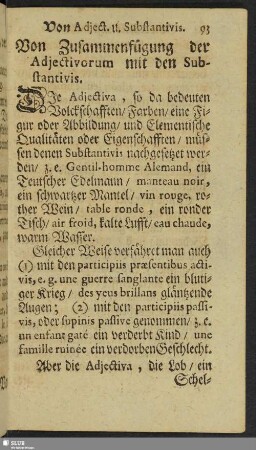 Von Adject. u. Substantivis. 93
Von Zusammenfügung der
Adjectivorum mit den Sub-
stantivis.
DIe Adjectiva, so da bedeuten
Volckschafften/ Farben/ eine Fi-
gur oder Abbildung/ und Elementische
Qualitäten oder Eigenschafften/ müs-
sen denen Substantivis nachgesetzet wer-
den/ z. e. Gentil-homme Alemand, ein
Teutscher Edelmann/ manteau noir,
ein schwartzer Mantel/ vin rouge, ro-
ther Wein/ table ronde, ein ronder
Tisch/ air froid, kalte Lufft/ eau chaude,
warm Wasser.
Gleicher Weise verfähret man auch
(1) mit den participiis præsentibus acti-
vis, e. g. une guerre sanglante ein bluti-
ger Krieg/ des yeus brillans gläntzende
Augen; (2) mit den participiis passi-
vis, oder supinis passive genommen/ z. e.
un enfant gaté ein verderbt Kind/ une
famille ruinée ein verdorben Geschlecht.
Aber die Adjectiva, die Lob/ ein
Schel-
SLUB